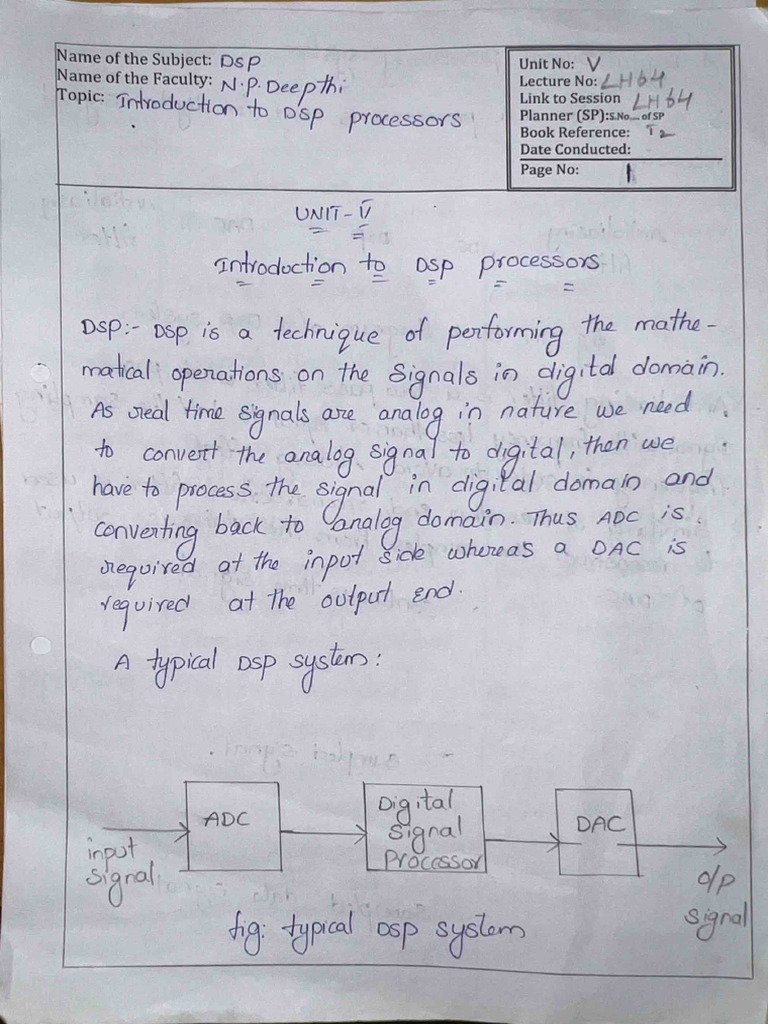 Name of the Subject: DSP
Name of the Faculty: N.P. Deepthi
Topic: Introduction to DSP processors
Unit No: V
Lecture No: LH64
Link to Session LH64
Planner (SP):S.No.... of SP
Book Reference: T2
Date Conducted:
Page No: 1
UNIT-V
Introduction to DSP processors
DSP:- DSP is a technique of performing the mathe-
matical operations on the signals in digital domain.
As real time signals are analog in nature we need
to convert the analog signal to digital, then we
have to process the signal in digital domain and
converting back to analog domain. Thus ADC is
required at the input side whereas a DAC is
required at the output end.
A typical DSP system:
ADC
Digital
Signal
Processor
DAC
input
signal
O/P
signal
fig: typical DSP system